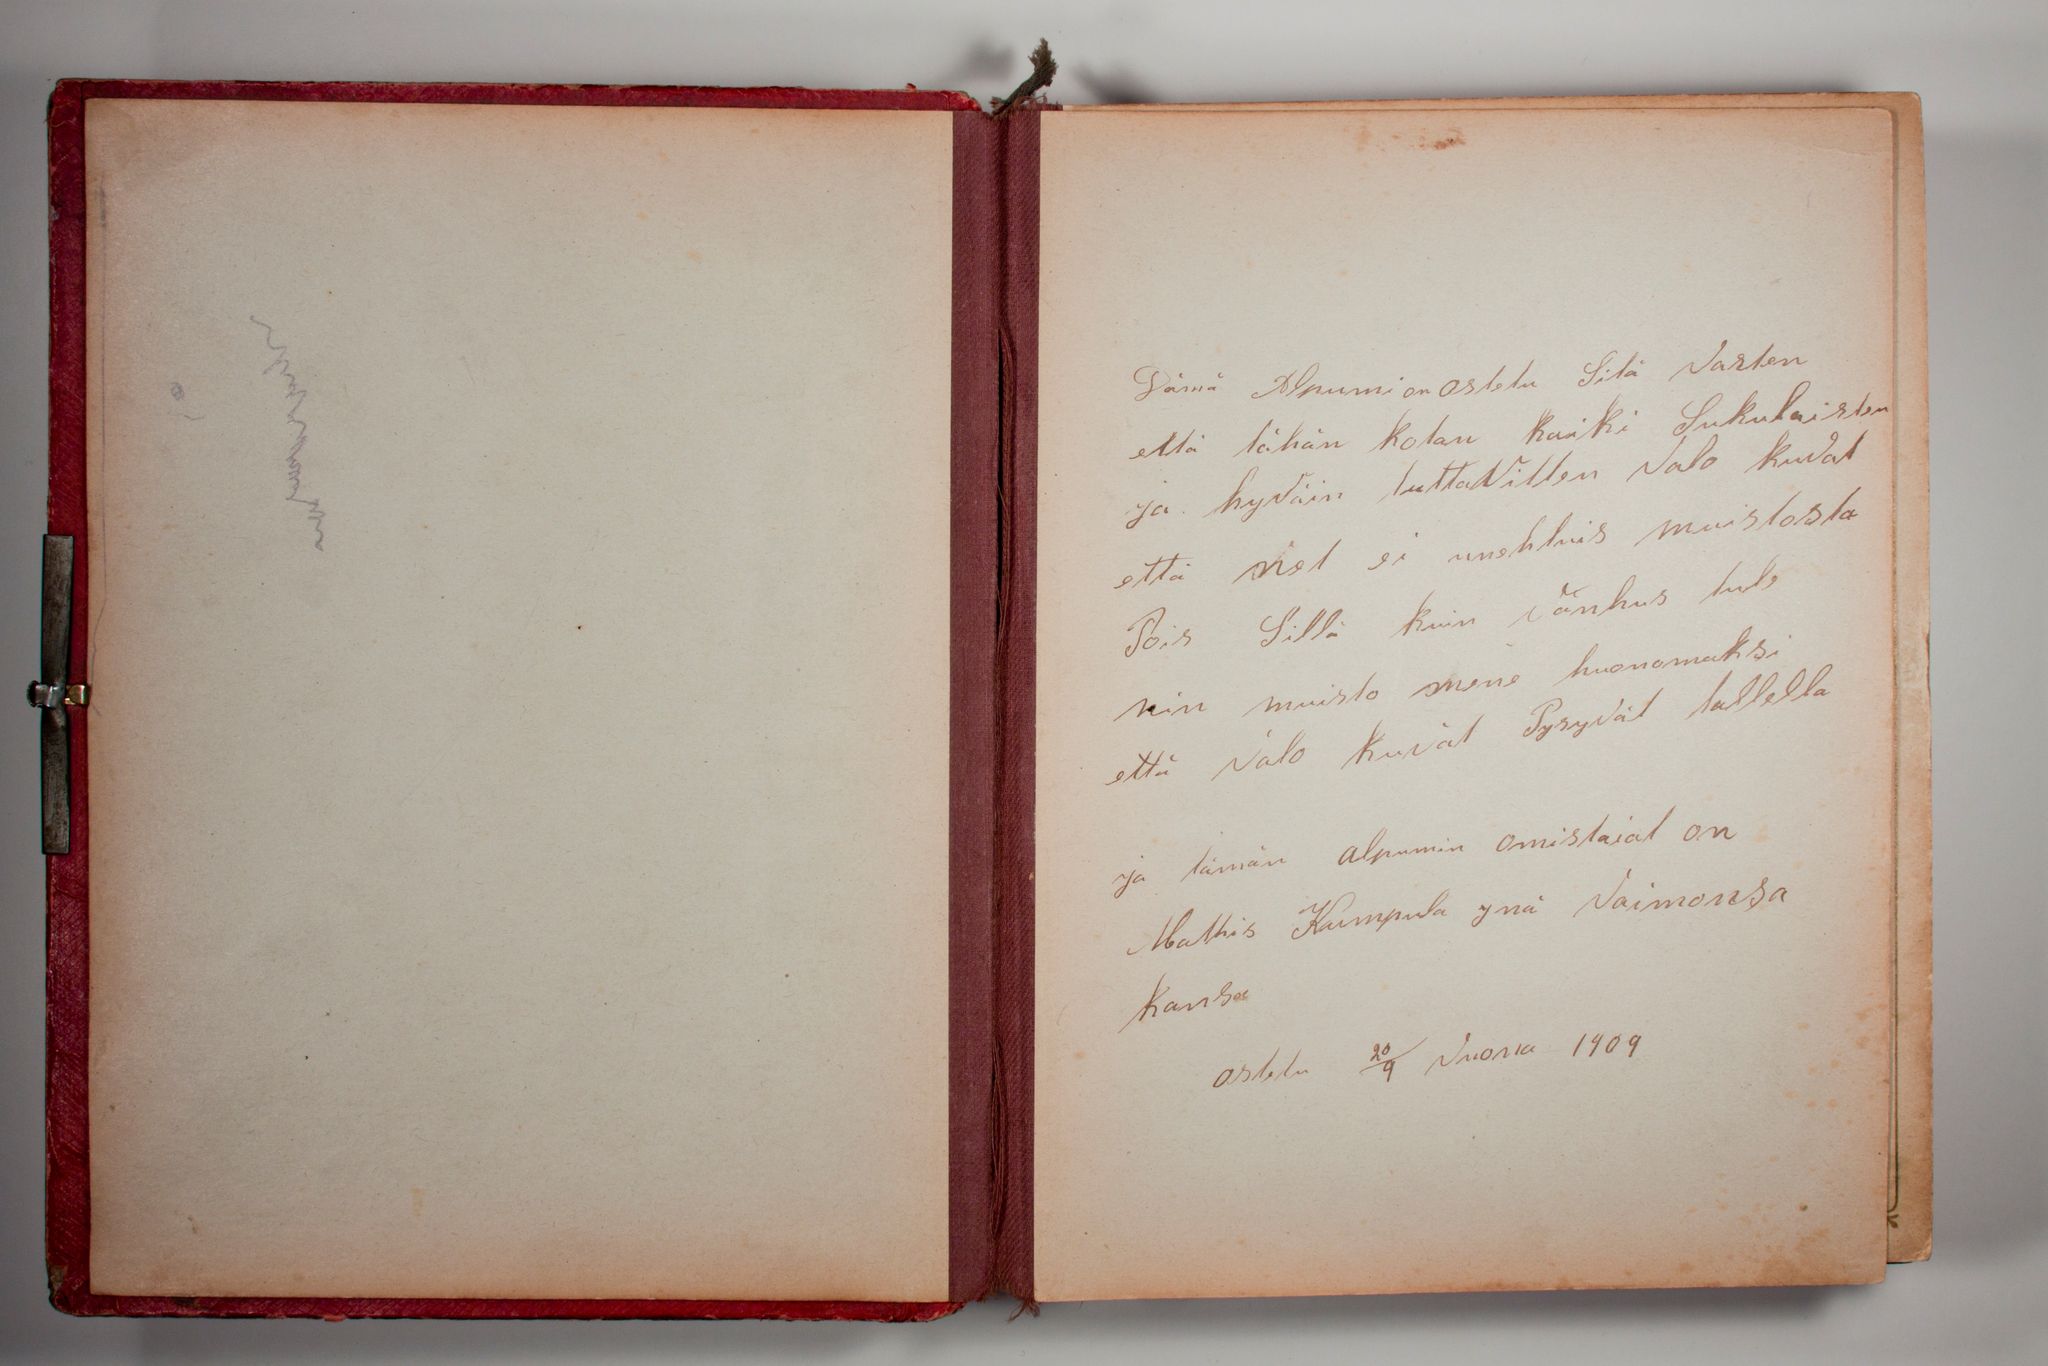 Tämä Alpumi on ostetu Sitä Varten
että tähän kotan kaiki Sukulaisten
ja hyVäin tuttaVitten Valo kuvat
että net ei unehtuis muistosta
Pois Sillä kuin vänhus tule
nin muisto mene huonomaksi
että Valo kuvat Pysyvät tallella
ja tämän alpumin omistaiat on
Mathis Kumpula ynä Vaimonsa
kansa
ostetu 20/9 Vuona 1909